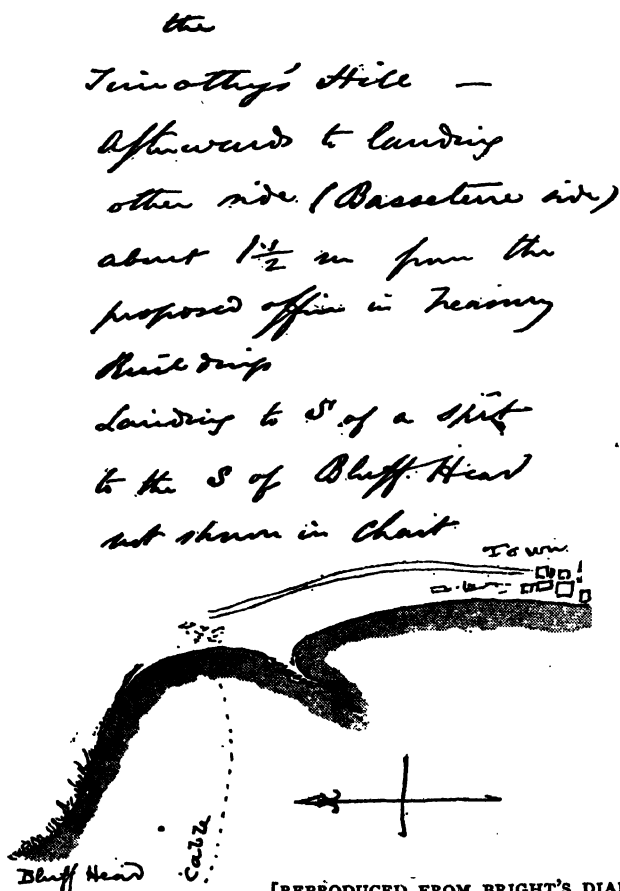 the
Timothy's Hill —
Afterwards to landing
other side (Basseterre side)
about 1 1/2 m from the
proposed office in Treasury
Buildings
Landing to S of a spit
to the S of Bluff Head
not shown in Chart
Town
Cable
Bluff Head
[REPRODUCED FROM BRIGHT'S DIA